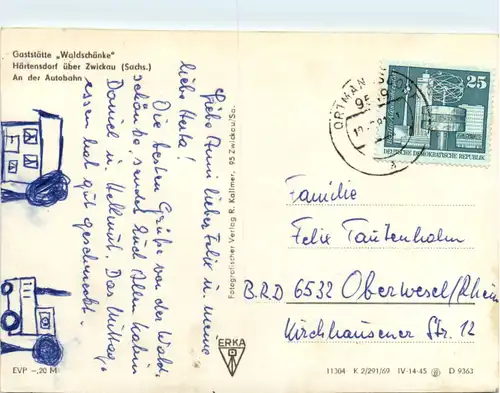 Gaststätte „Waldschänke"
Härtensdorf über Zwickau (Sachs.)
An der Autobahn
Liebe Anni lieber Felix u. meine
liebe Herta!
Die besten Grüße von der Wald-
schänke sendet Euch Allen
Daniel u. Hellmut. Das Mittag-
essen hat gut geschmeckt.
EVP –,20 M
Fotografischer Verlag R. Kallmer, 95 Zwickau/Sa.
ERKA
25
DEUTSCHE DEMOKRATISCHE REPUBLIK
Familie
Felix Tautenhahn
B.R.D 6532 Oberwesel/Rhein
Kirchhausener Str. 12
11304 K 2/291/69 IV-14-45 D 9363